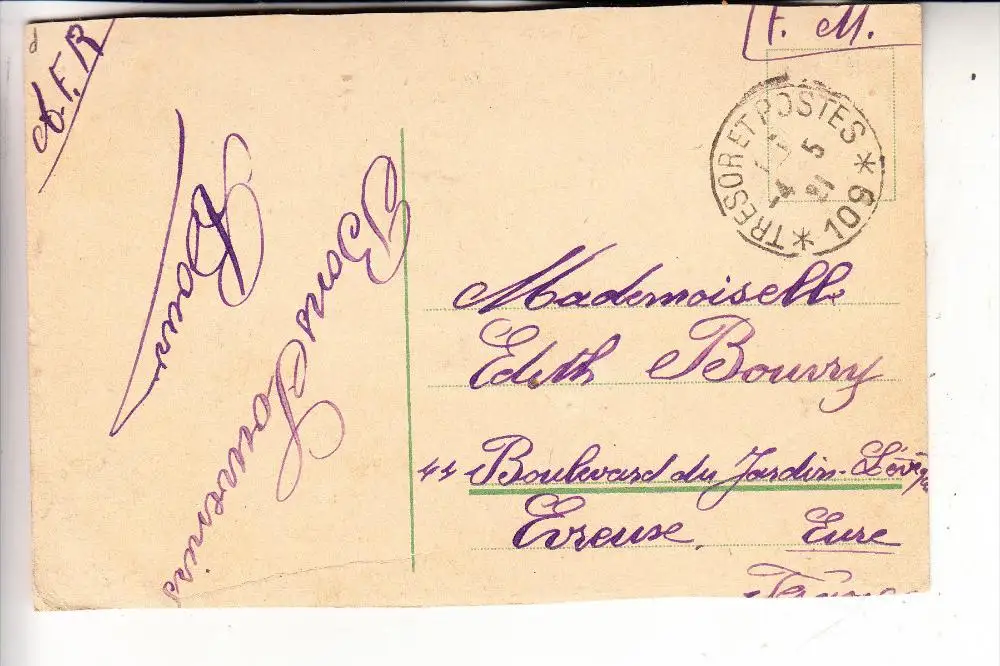 A.F.R
F. M.
TRESOR ET POSTES
* 109 *
4 - 5
21
Bons Souvenirs
Mademoiselle
Edith Bouvry
44 Boulevard du Jardin-L'évêque
Evreuse, Eure
France